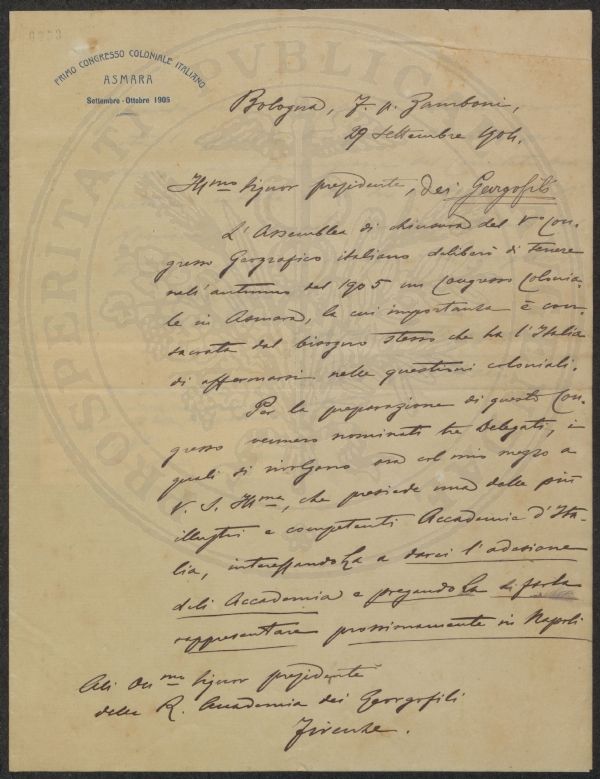 PRIMO CONGRESSO COLONIALE ITALIANO
ASMARA
Settembre - Ottobre 1905
PROSPERITATI PVBLICAE
Bologna, 7. p. Zamboni,
29 Settembre 904.
Ill.mo Signor presidente, dei Georgofili
L'Assemblea di chiusura del V° Con-
gresso Geografico italiano deliberò di tenere
nell'autunno del 1905 un Congresso Colonia-
le in Asmara, la cui importanza è con-
sacrata dal bisogno stesso che ha l'Italia
di affermarsi nelle questioni coloniali.
Per la preparazione di questo Con-
gresso vennero nominati tre Delegati, i
quali si rivolgono ora col mio mezzo a
V. S. Ill.ma, che presiede una delle più
illustri e competenti Accademie d'Ita-
lia, interessandola a darci l'adesione
dell'Accademia e pregandola di farla
rappresentare prossimamente in Napoli
All' On.mo Signor presidente
della R. Accademia dei Georgofili
Firenze.